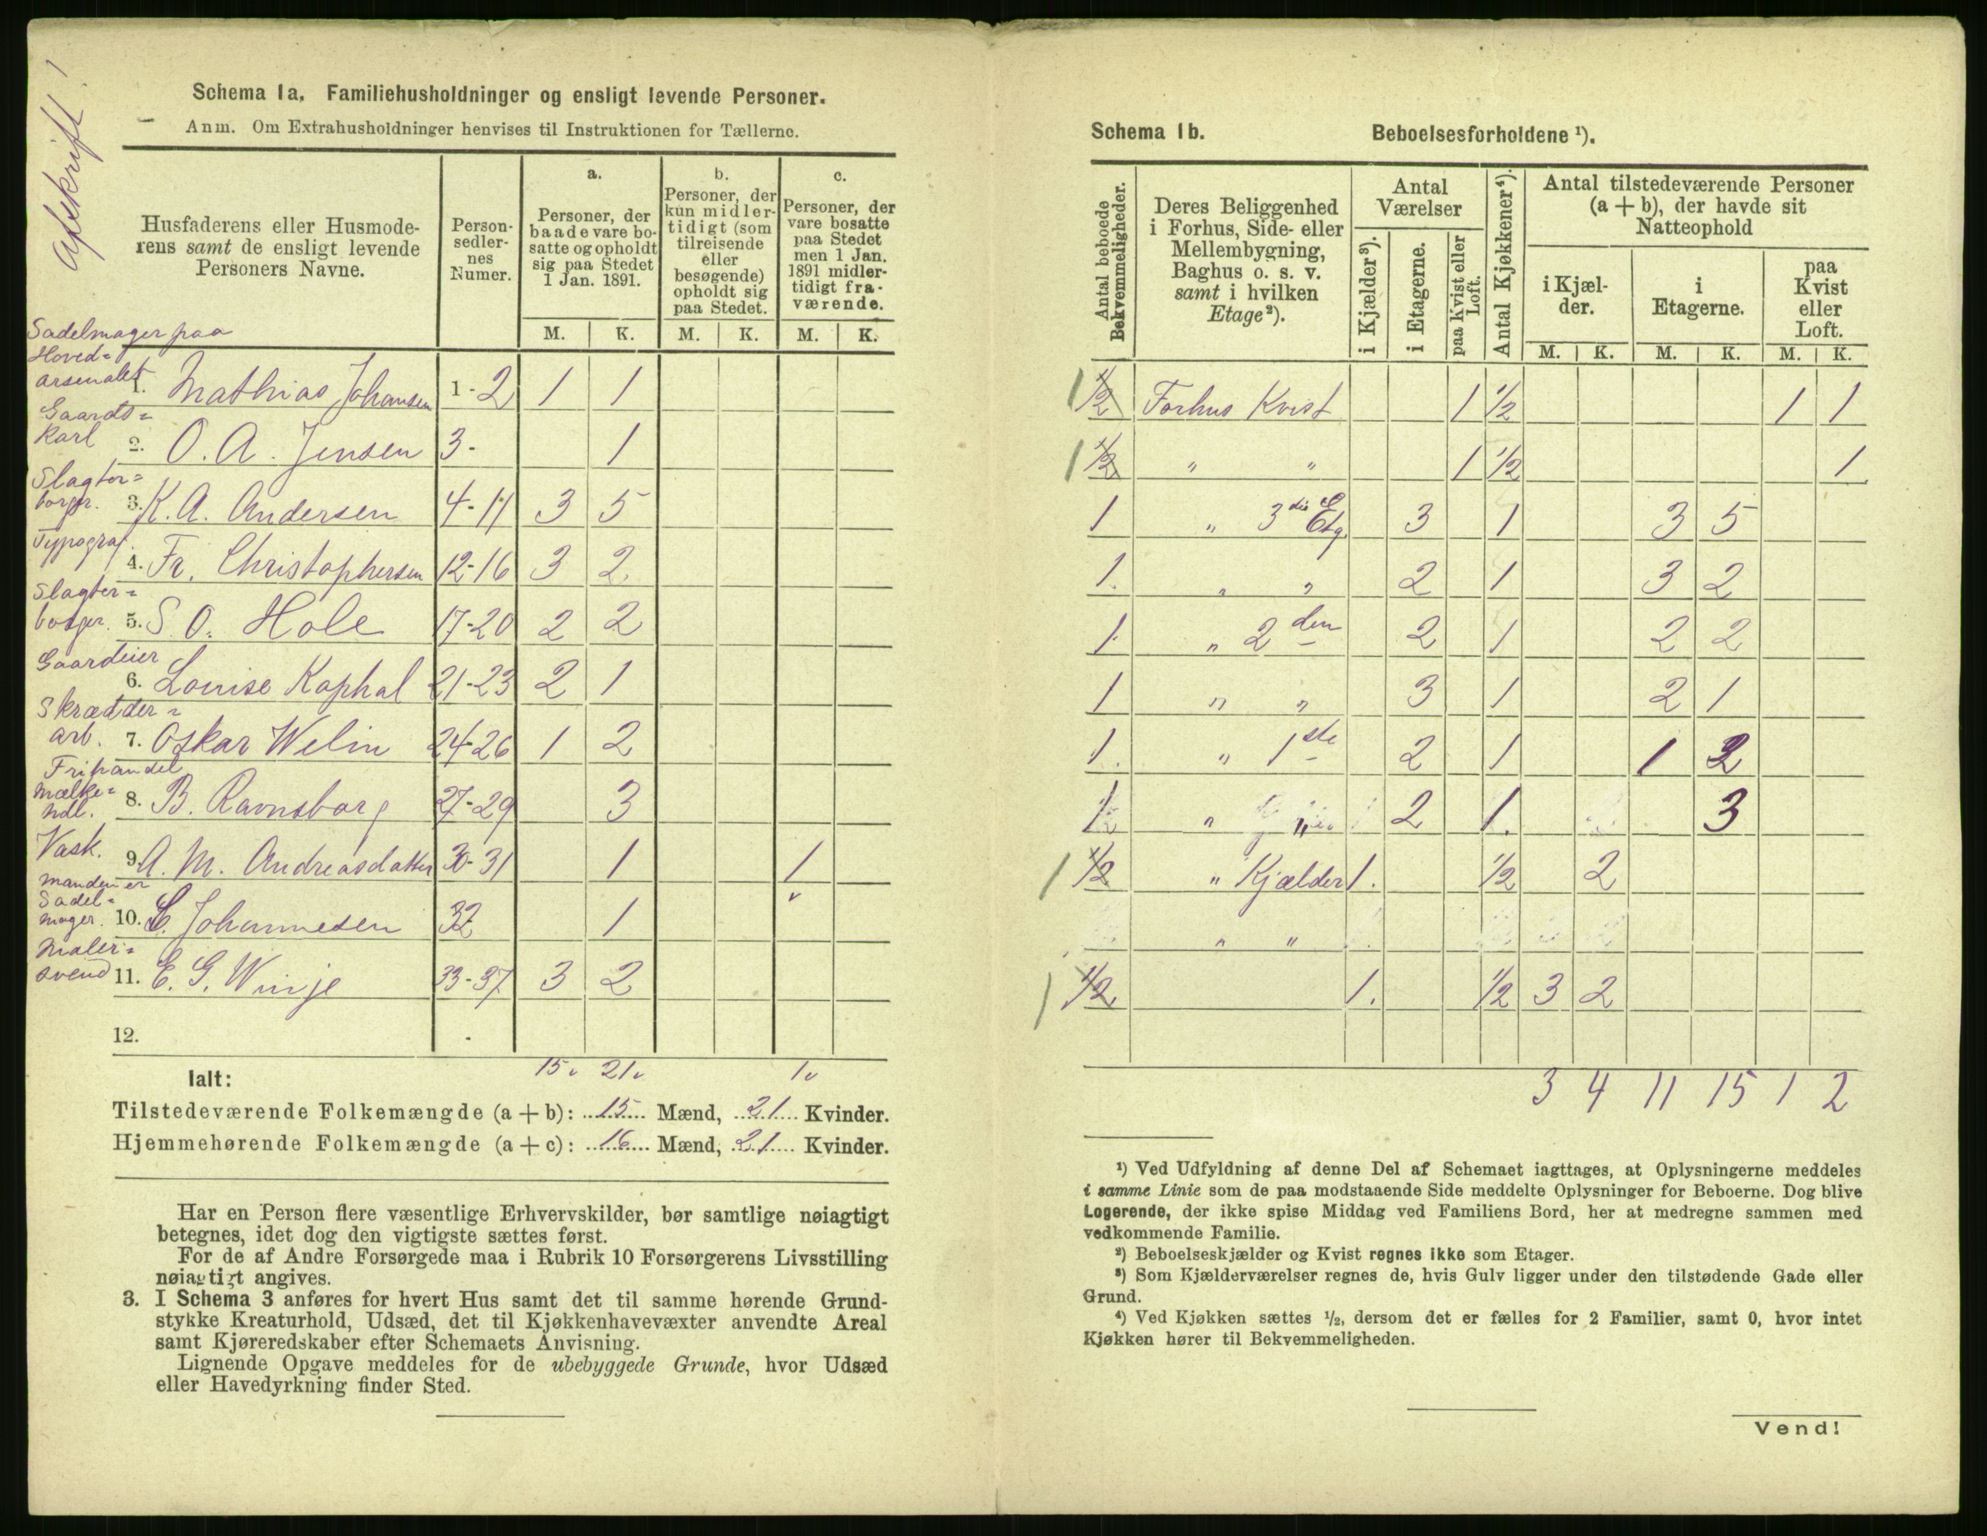 Afskrift!
Schema 1a. Familiehusholdninger og ensligt levende Personer.
Anm. Om Extrahusholdninger henvises til Instruktionen for Tællerne.
Husfaderens eller Husmoderens samt de ensligt levende Personers Navne.
Personsedlernes Numer.
a. Personer, der baade vare bosatte og opholdt sig paa Stedet 1 Jan. 1891.
b. Personer, der kun midlertidigt (som tilreisende eller besøgende) opholdt sig paa Stedet.
c. Personer, der vare bosatte paa Stedet men 1 Jan. 1891 midlertidigt fraværende.
M. K. M. K. M. K.
Sadelmager paa Hovedarsenalet 1. Mathias Johansen 1-2 1 1
Gaardskarl 2. O. A. Jensen 3- 1
Slagterborger. 3. K. A. Andersen 4-11 3 5
Typograf. 4. Fr. Christophersen 12-16 3 2
Slagterborger. 5. S. O. Hole 17-20 2 2
Gaardeier 6. Louise Kaphal 21-23 2 1
Skrædderarb. 7. Oskar Welin 24-26 1 2
Frihandel Mælkehdl. 8. B. Ravnsborg 27-29 3
Vask. 9. A. M. Andreasdatter 30-31 1 1
Manden er Sadelmager. 10. C. Johannesen 32 1
Malersvend 11. E. G. Winje 33-37 3 2
12.
Ialt: 15 21 1
Tilstedeværende Folkemængde (a + b): 15 Mænd, 21 Kvinder.
Hjemmehørende Folkemængde (a + c): 16 Mænd, 21 Kvinder.
Har en Person flere væsentlige Erhvervskilder, bør samtlige nøiagtigt
betegnes, idet dog den vigtigste sættes først.
For de af Andre Forsørgede maa i Rubrik 10 Forsørgerens Livsstilling
nøiagtigt angives.
3. I Schema 3 anføres for hvert Hus samt det til samme hørende Grund-
stykke Kreaturhold, Udsæd, det til Kjøkkenhavevæxter anvendte Areal
samt Kjøreredskaber efter Schemaets Anvisning.
Lignende Opgave meddeles for de ubebyggede Grunde, hvor Udsæd
eller Havedyrkning finder Sted.
Schema 1b. Beboelsesforholdene ¹).
Antal beboede Bekvemmeligheder.
Deres Beliggenhed i Forhus, Side- eller Mellembygning, Baghus o. s. v. samt i hvilken Etage²).
Antal Værelser
i Kjælder³).
i Etagerne.
paa Kvist eller Loft.
Antal Kjøkkener⁴).
Antal tilstedeværende Personer (a + b), der havde sit Natteophold
i Kjælder.
i Etagerne.
paa Kvist eller Loft.
M. K. M. K. M. K.
1 1/2 Forhus Kvist 1 1/2 1 1
1 1/2 " " 1 1/2 1
1 " 3die Etg 3 1 3 5
1. " " 2 1 3 2
1. " 2den 2 1 2 2
1 " " 3 1 2 1
1. " 1ste 2 1 1 2
1 " " 2 1. 3
1 1/2 " Kjælder 1. 1/2 2
" "
1 1/2 1. 1/2 3 2
3 4 11 15 1 2
¹) Ved Udfyldning af denne Del af Schemaet iagttages, at Oplysningerne meddeles
i samme Linie som de paa modstaaende Side meddelte Oplysninger for Beboerne. Dog blive
Logerende, der ikke spise Middag ved Familiens Bord, her at medregne sammen med
vedkommende Familie.
²) Beboelseskjælder og Kvist regnes ikke som Etager.
³) Som Kjælderværelser regnes de, hvis Gulv ligger under den tilstødende Gade eller
Grund.
⁴) Ved Kjøkken sættes ½, dersom det er fælles for 2 Familier, samt 0, hvor intet
Kjøkken hører til Bekvemmeligheden.
Vend!